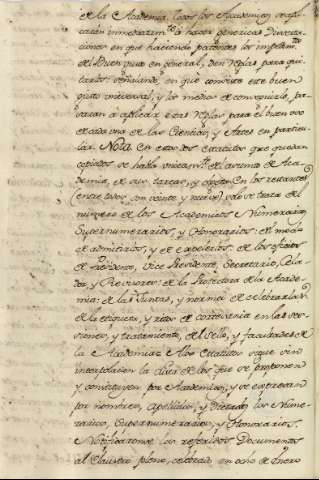 de la Academia, todos los Academicos se apli-
caràn inmediatamte. à hacer genericas Disertacio-
ciones en que haciendo patentes los impedimtos.
del Buen gusto en general, den reglas para qui-
tarlos: señalando en què consiste este buen
gusto universal, y los medios de conseguirlo, pa-
saran à aplicar estas reglas para el buen uso
de cada una de las Ciencias, y Artes en particu-
lar. Nota. En estos dos estatutos que quedan
copiados se habla unicamte. del asumto de Aca-
demia, de sus tareas, y objeto. En los restantes
(entre todos son veinte y nueve) solo se trata del
numero de los Academicos Numerarios,
Supernumerarios, y Honorarios: del modo
de admitirlos, y de expelerlos: de los oficios
de Presidente, Vice Presidente, Secretario, Cela-
dor y Revisores: de la Protectora de la Acade-
mia: de las Juntas, y norma de celebrarlas:
de la etiqueta, y ritos de cortesania en las se-
siones, y tratamiento, del Sello, y facultades de
la Academia: A los Estatutos sigue sin
interpolacion la lista de los que se proponen
y constituyen por Academicos, y se expresan
por nombres, apellidos, y Dictados los Nume-
rarios, Supernumerarios, y Honorarios.
Notificaronse los referidos Documentos
al Claustro pleno, celebrado en ocho de Enero